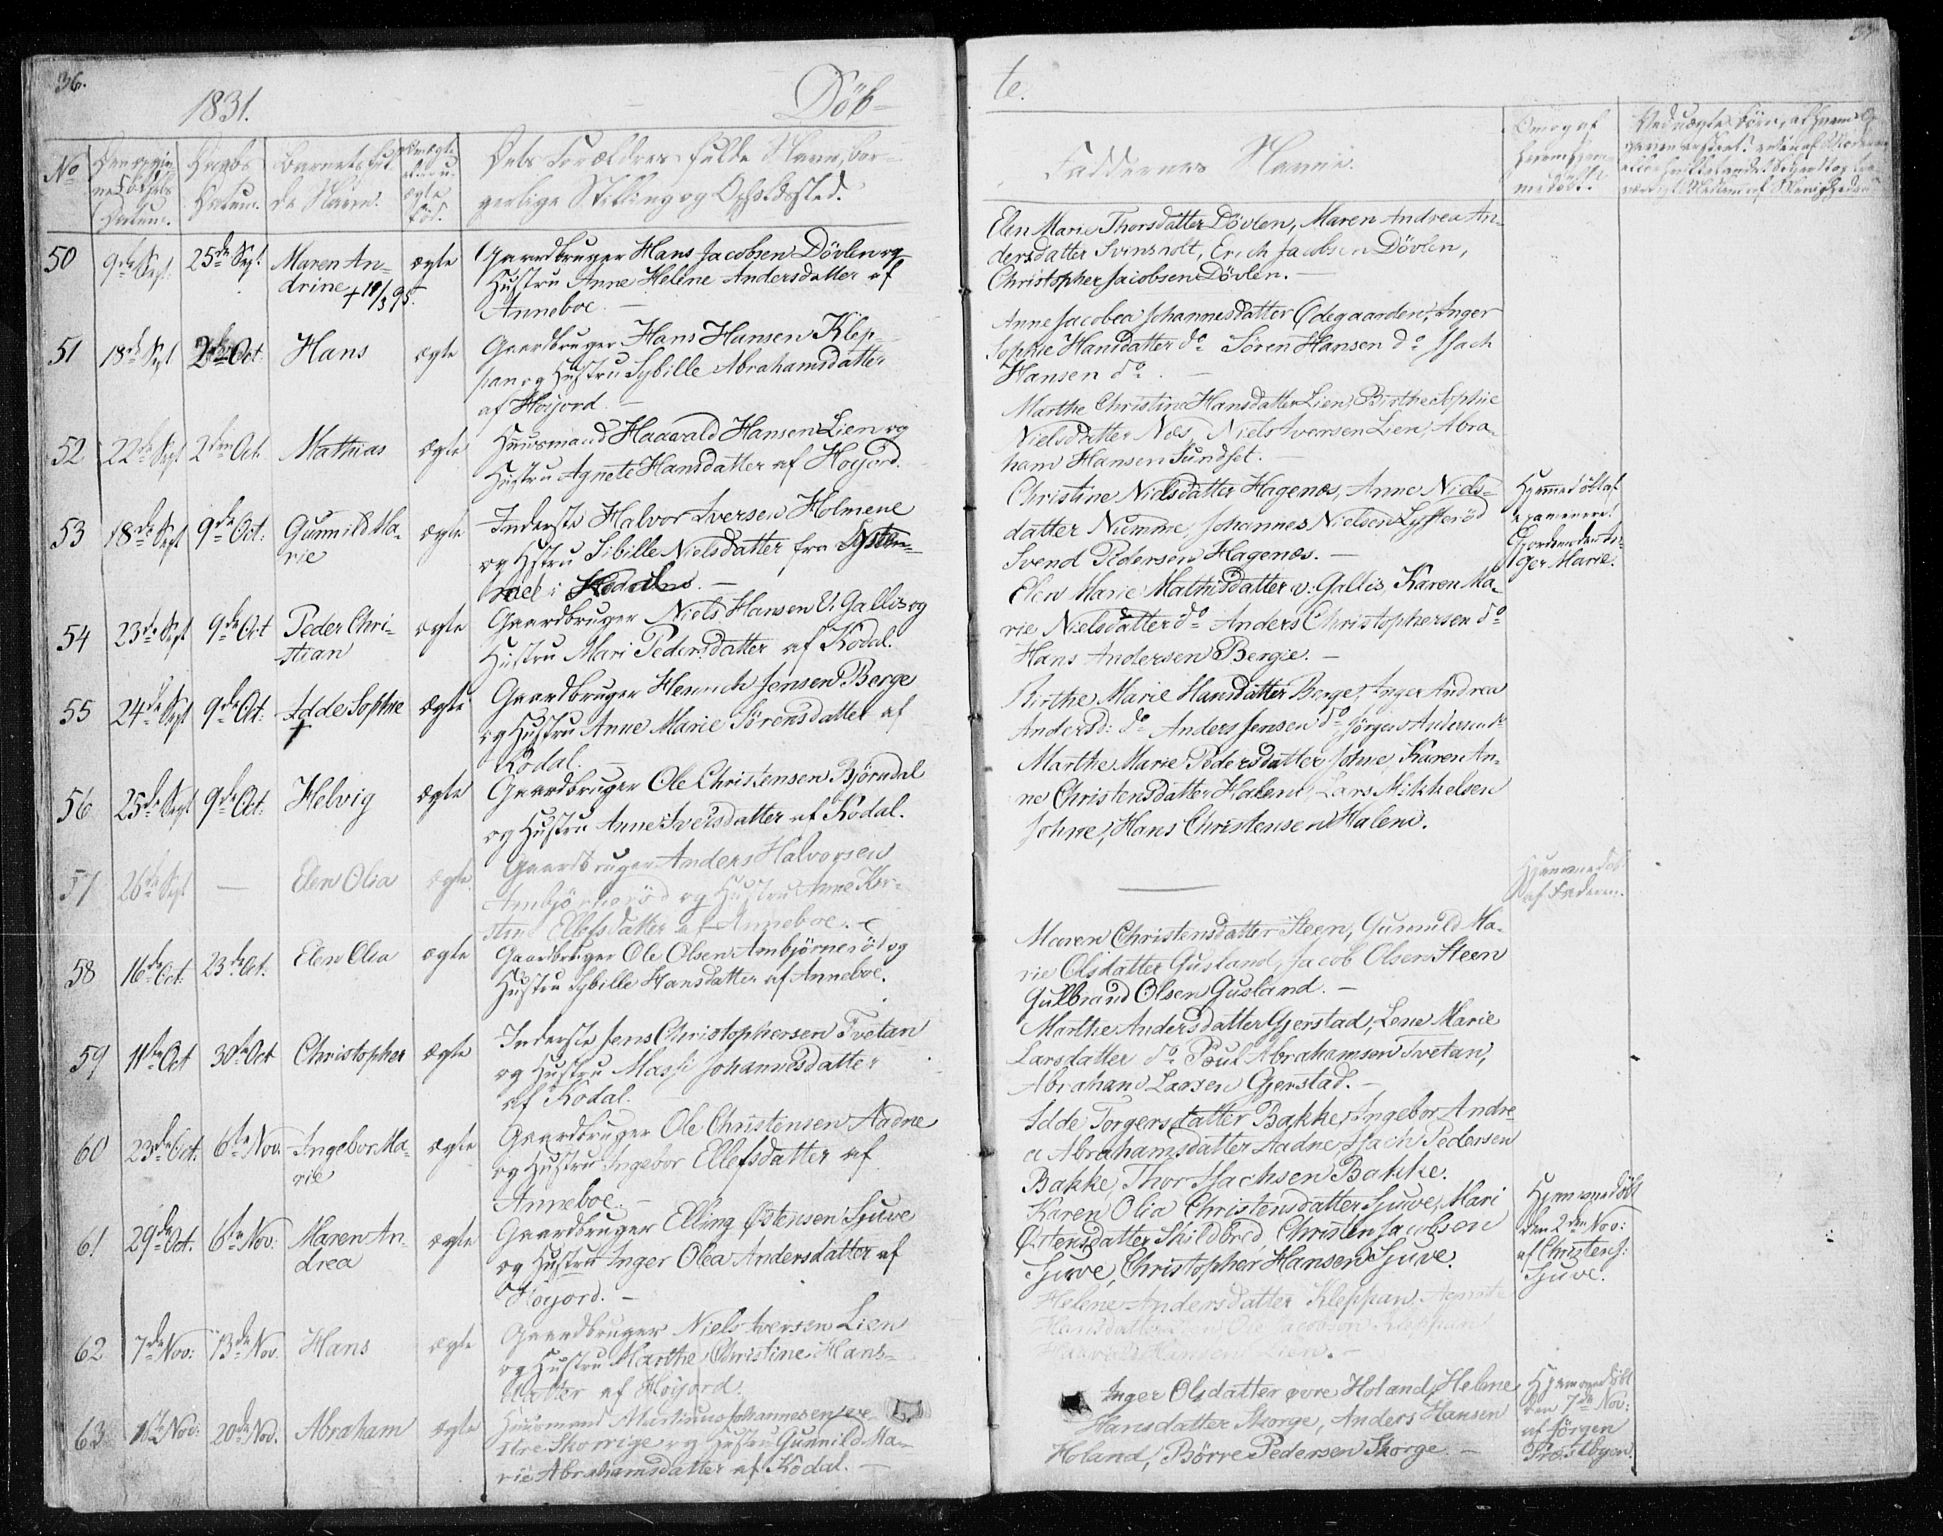 36.
1831.
Döb-
No
Barnets ful-
de Navn.
Dets Forældres fulde Navne, bor-
gerlige Stilling og Opholdssted.
50
9de Sept.
25de Sept.
Maren An-
drine + 18/3 95.
ægte
Gaardbruger Hans Jacobsen Dövlen og
Hustru Anne Helene Andersdatter af
Anneboe. —
51
18de Sept
2den Oct.
Hans
ægte
Gaardbruger Hans Hansen Klep-
pan og Hustru Sybille Abrahamsdatter
af Höijord. —
52
22de Sept
2den Oct.
Mathias
ægte
Huusmand Haavald Hansen Lien og
Hustru Agnete Hansdatter af Höijord.
53
18de Sept
9de Oct.
Gunnild Ma-
rie
ægte
Inderste Halvor Iversen Holmene
og Hstru Sibille Nielsdatter fra
i —
54
23de Sept
9de Oct
Peder Chri-
stian
ægte
Gaardbruger Niels Hansen V. Gallis og
Hustru Mari Pedersdatter af Kodal.
55
24de Sept
9de Oct.
Idde Sophie
+
ægte
Gaardbruger Henrich Jensen Berge
og Hustru Anne Marie Sörensdatter af
Kodal. —
56
25de Sept
9de Oct.
Helvig
ægte
Gaardbruger Ole Christensen Björndal
og Hustru Anne Iversdatter af Kodal.
57
26de Sept
—
Elen Olia
ægte
Gaardbruger Anders Halvorsen
Ambjörneröd og Hustru Anne Kir-
stine Ellefsdatter af Anneboe. —
58
16de Oct.
23de Oct.
Elen Olea
ægte
Gaardbruger Ole Olsen Ambjörneröd og
Hustru Sybille Hansdatter af Anneboe.
59
11te Oct
30te Oct
Christopher
ægte
Inderste Jens Christophersen Tvetan
og Hustru Massi Johannesdatter
af Kodal.
60
23de Oct.
6te Nov.
Ingebor Ma-
rie
ægte
Gaardbruger Ole Christensen Aadne
og Hustru Ingebor Ellefsdatter af
Anneboe. —
61
29de Oct.
6te Nov:
Maren An-
drea
ægte
Gaardbruger Elling Østensen Sjuve
og Hustru Inger Olea Andersdatter af
Höijord. —
62
7de Nov:
13de Nov.
Hans
ægte
Gaardbruger Niels Iversen Lien
og Hustru Marthe Christine Hans-
datter af Höijord.
63
Nov:
20de Nov.
Abraham
ægte
Huusmand Martinus Johannesen
og Hustru Gunnild Ma-
rie Abrahamsdatter af Kodal. —
te.
Faddernes Navne.
Elen Marie Thorsdatter Dövlen, Maren Andrea An-
dersdatter Svinsholt, Erich Jacobsen Dövlen,
Christopher Jacobsen Dövlen. —
Anne Jacobea Johannesdatter Ødegaarden, Inger
Sophie Hansdatter do Sören Hansen do Isach
Hansen do. —
Marthe Christine Hansdatter Lien, Birthe Sophie
Nielsdatter Næs, Niels Iversen Lien, Abra-
ham Hansen Sundset. —
Christine Nielsdatter Hagenæs, Anne Niels-
datter Numme, Johannes Nielsen Lysteröd
Svend Pedersen Hagenæs. —
Elen Marie Mathisdatter v: Gallis, Karen Ma-
rie Nielsdatter do Anders Christophersen do
Hans Andersen Bergie. —
Birthe Marie Hansdatter Berge, Inger Andrea
Andersd: do Anders Jensen do Jörgen Andersen do
Marthe Marie Pedersdatter Johne, Karen An-
ne Christensdatter Halene, Lars Mikkelsen
Johne, Hans Christensen Halene.
Hjemmedöbt
af Faderen.
Maren Christensdatter Steen, Gunnild Ma-
rie Olsdatter Gusland, Jacob Olsen Steen
Gulbrand Olsen Gusland. —
Marthe Andersdatter Gjerstad, Lene Marie
Larsdatter do Poul Abrahamsen Tvetan,
Abraham Larsen Gjerstad. —
Idde Torgersdatter Bakke, Ingebor Andre-
a Abrahamsdatter Aadne, Isach Pedersen
Bakke, Thor Isachsen Bakke.
Karen Olia Christensdatter Sjuve, Mari
Østensdatter Skildbred Christen Jacobsen
Sjuve, Christopher Hansen Sjuve.
Hjemmedöbt
den 2den Nov:
af Christen J:
Sjuve.
Helene Andersdatter Kleppan, Agnete
Hansdatter Ole Jacobsen Kleppan
Haavald Hansen Lien. —
Inger Olsdatter övre Holand, Helene
Hansdatter Skorge, Anders Hansen
Holand, Börre Pedersen Skorge. —
Hjemmedöbt
den 7de Nov:
af Jörgen